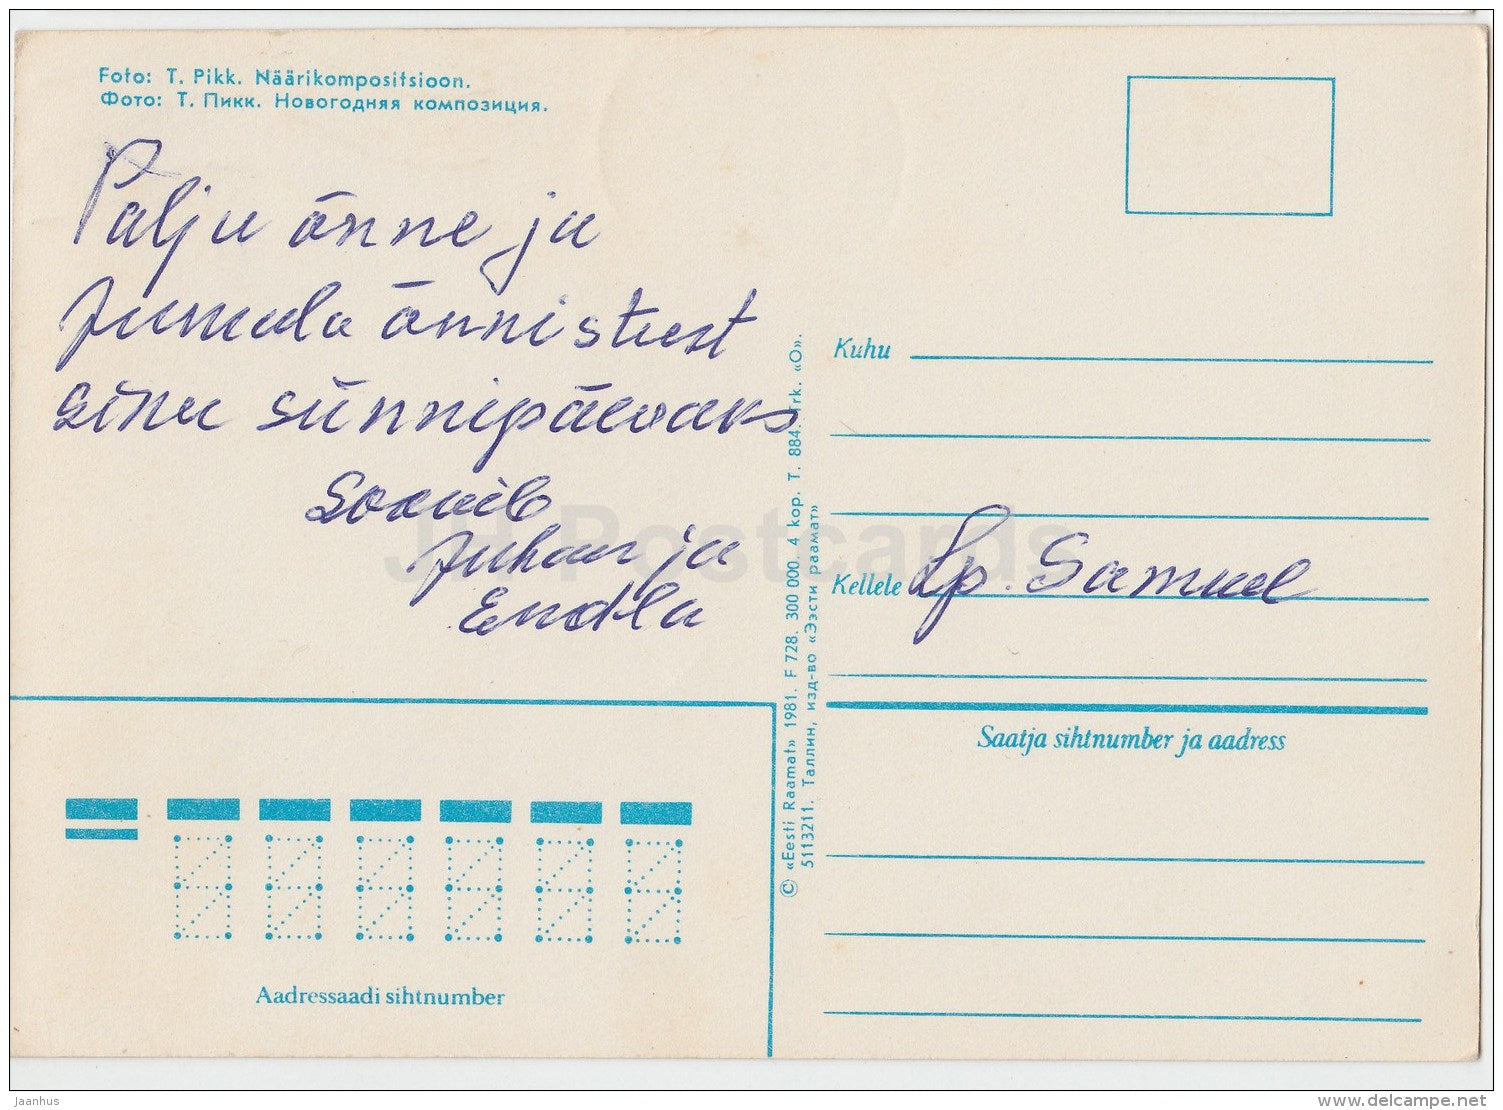 Foto: T. Pikk. Näärikompositsioon.
Фото: Т. Пикк. Новогодняя композиция.
Palju õnne ja
Jumala õnnistust
sinu sünnipäevaks
Soovib
Juhan ja
Endla
Kuhu
Kellele Lp. Samuel
Saatja sihtnumber ja aadress
Aadressaadi sihtnumber
© «Eesti Raamat» 1981. F 728. 300 000. 4 kop. T. 884. Trk. «O».
5113211. Таллин, изд-во «Ээсти раамат»
JH Postcards
Jaanhus
delcampe.net